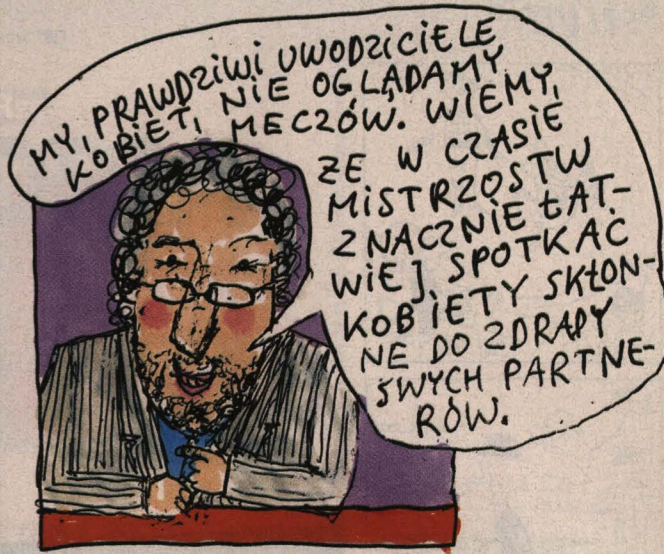 MY, PRAWDZIWI UWODZICIELE
KOBIET, NIE OGLĄDAMY
MECZÓW. WIEMY,
ŻE W CZASIE
MISTRZOSTW
ZNACZNIE ŁAT-
WIEJ SPOTKAĆ
KOBIETY SKŁON-
NE DO ZDRADY
SWYCH PARTNE-
RÓW.